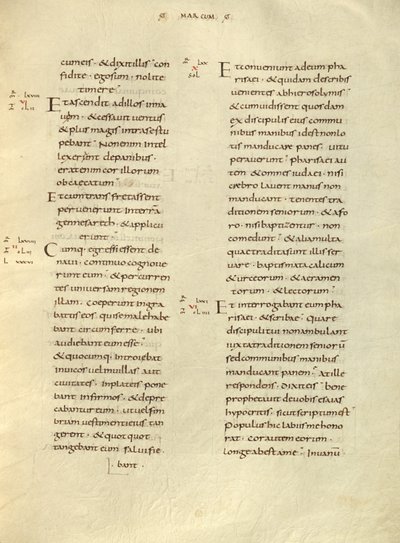 MARCUM
cum eis · & dixit illis con
fidite · ego sum · nolite
timere ·
Et ascendit ad illos in na
vem · & cessavit ventus
& plus magis intra se stu
pebant · Non enim intel
lexerunt de panibus ·
erat enim cor illorum
obcaecatum ·
Et cum transfretassent
pervenerunt in terra
gennesareth · & applicu
erunt ·
Cumq · egressi essent de
navi · continuo cognove
runt eum · & percurren
tes universam regionem
illam · coeperunt in gra
battis eos · qui se male habe
bant circumferre · ubi
audiebant eum esse ·
& quocumq · introiebat
in vicos vel in villas aut
civitates · in plateis pone
bant infirmos · & depre
cabantur eum · ut vel fim
briam vestimenti eius tan
gerent · & quot quot
tangebant eum salvi fie
bant ·
LXX
Et conveniunt ad eum pha
risaei · & quidam de scribis
venientes ab hierosolymis ·
& cum vidissent quosdam
ex discipulis eius commu
nibus manibus id est non lo
tis manducare panes · vitu
peraverunt · pharisaei au
tem & omnes iudaei · nisi
crebro lavent manus non
manducant · tenentes tra
ditionem seniorum · & a fo
ro · nisi baptizentur · non
comedunt · & alia multa
quae tradita sunt illis ser
vare · baptismata calicum
& urceorum · & aeramen
torum · & lectorum ·
LXXI
Et interrogabant eum pha
risaei · & scribae · quare
discipuli tui non ambulant
iuxta traditionem seniorū
sed communibus manibus
manducant panem · at ille
respondens · dixit eis · bene
prophetavit de vobis esaias
hypocritis · sicut scriptum est
Populus hic labiis me hono
rat · cor autem eorum ·
longe abest a me · In vanū